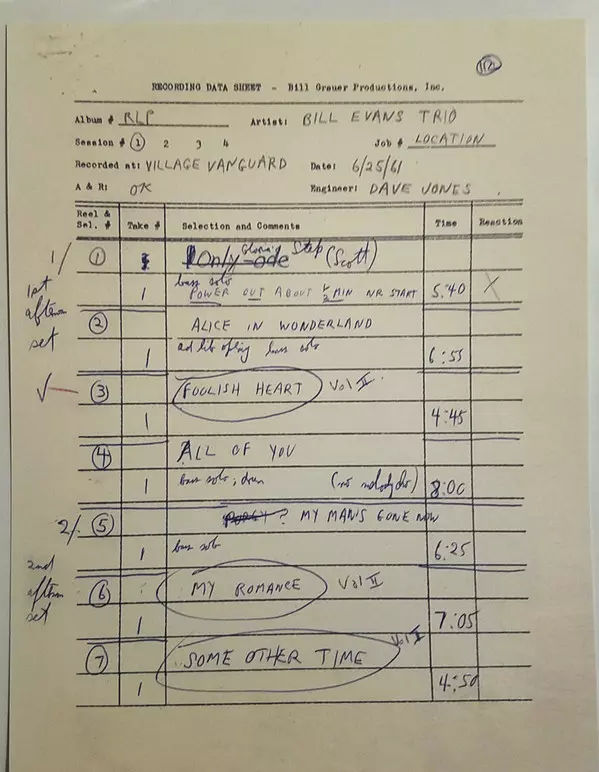 RECORDING DATA SHEET - Bill Grauer Productions, Inc.
Album # RLP Artist: BILL EVANS TRIO
Session # 1 2 3 4 Job # LOCATION
Recorded at: VILLAGE VANGUARD Date: 6/25/61
A & R: OK Engineer: DAVE JONES
Reel & Sel. # Take # Selection and Comments Time Reaction
1/ 1 Gloria's Step (Scott)
1st aftern set
bass solo
1 POWER OUT ABOUT 1/2 MIN NR START 5:40 X
2 ALICE IN WONDERLAND
1 bass solo 6:55
✓ 3 FOOLISH HEART Vol II
1 4:45
4 ALL OF YOU
1 bass solo, drum (no melody chr) 8:00
2/ 5 PORGY? MY MAN'S GONE NOW
1 bass solo 6:25
2nd aftern set
6 MY ROMANCE Vol II
1 7:05
7 SOME OTHER TIME Vol II
1 4:50